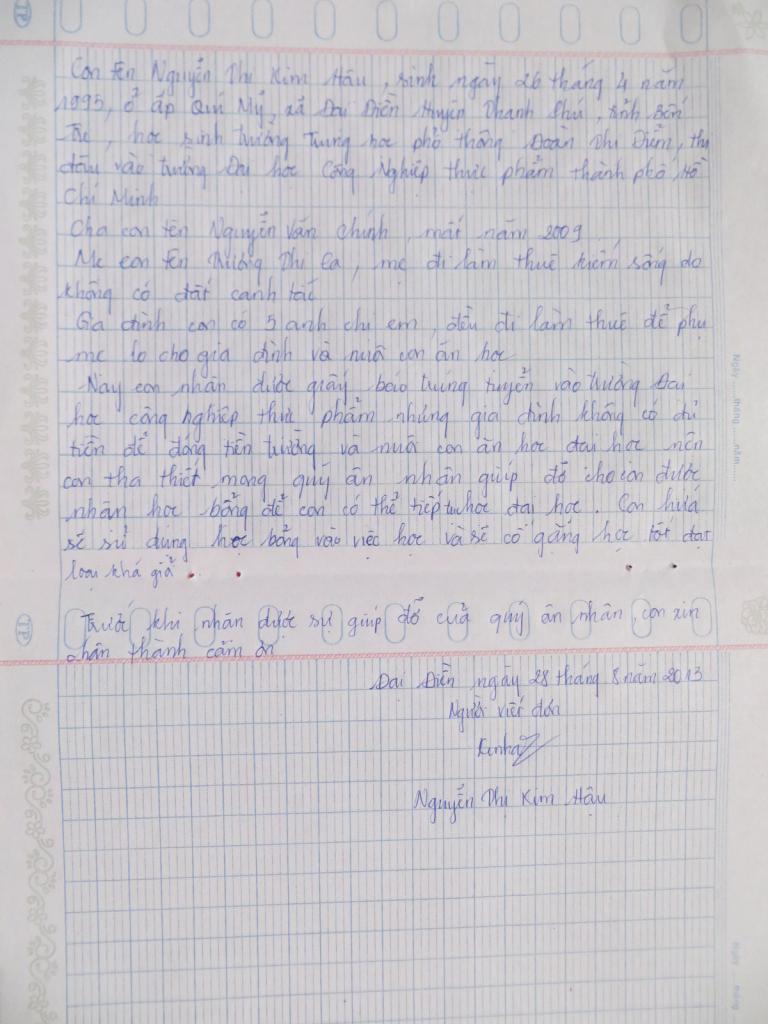 TP
Con tên Nguyễn Thị Kim Hậu, sinh ngày 26 tháng 4 năm
1995, ở ấp Quí Mỹ, xã Đại Điền Huyện Thạnh Phú, tỉnh Bến
Tre, học sinh trường Trung học phổ thông Đoàn Thị Điểm, thi
đậu vào trường Đại học Công Nghiệp thực phẩm thành phố Hồ
Chí Minh
Cha con tên Nguyễn Văn Chính, mất năm 2009.
Mẹ con tên Trương Thị Ca, mẹ đi làm thuê kiếm sống do
không có đất canh tác
Gia đình con có 5 anh chị em, đều đi làm thuê để phụ
mẹ lo cho gia đình và nuôi con ăn học
Nay con nhận được giấy báo trúng tuyển vào trường Đại
học công nghiệp thực phẩm nhưng gia đình không có đủ
tiền để đóng tiền trường và nuôi con ăn học đại học nên
con tha thiết mong quý ân nhân giúp đỡ cho con được
nhận học bổng để con có thể tiếp tục học đại học. Con hứa
sẽ sử dụng học bổng vào việc học và sẽ cố gắng học tốt đạt
loại khá giỏi.
Trước khi nhận được sự giúp đỡ của quý ân nhân, con xin
chân thành cảm ơn
TP
Đại Điền ngày 28 tháng 8 năm 2013
Người viết đơn
Nguyễn Thị Kim Hậu
Ngày..... tháng..... năm......
Ngày..... tháng